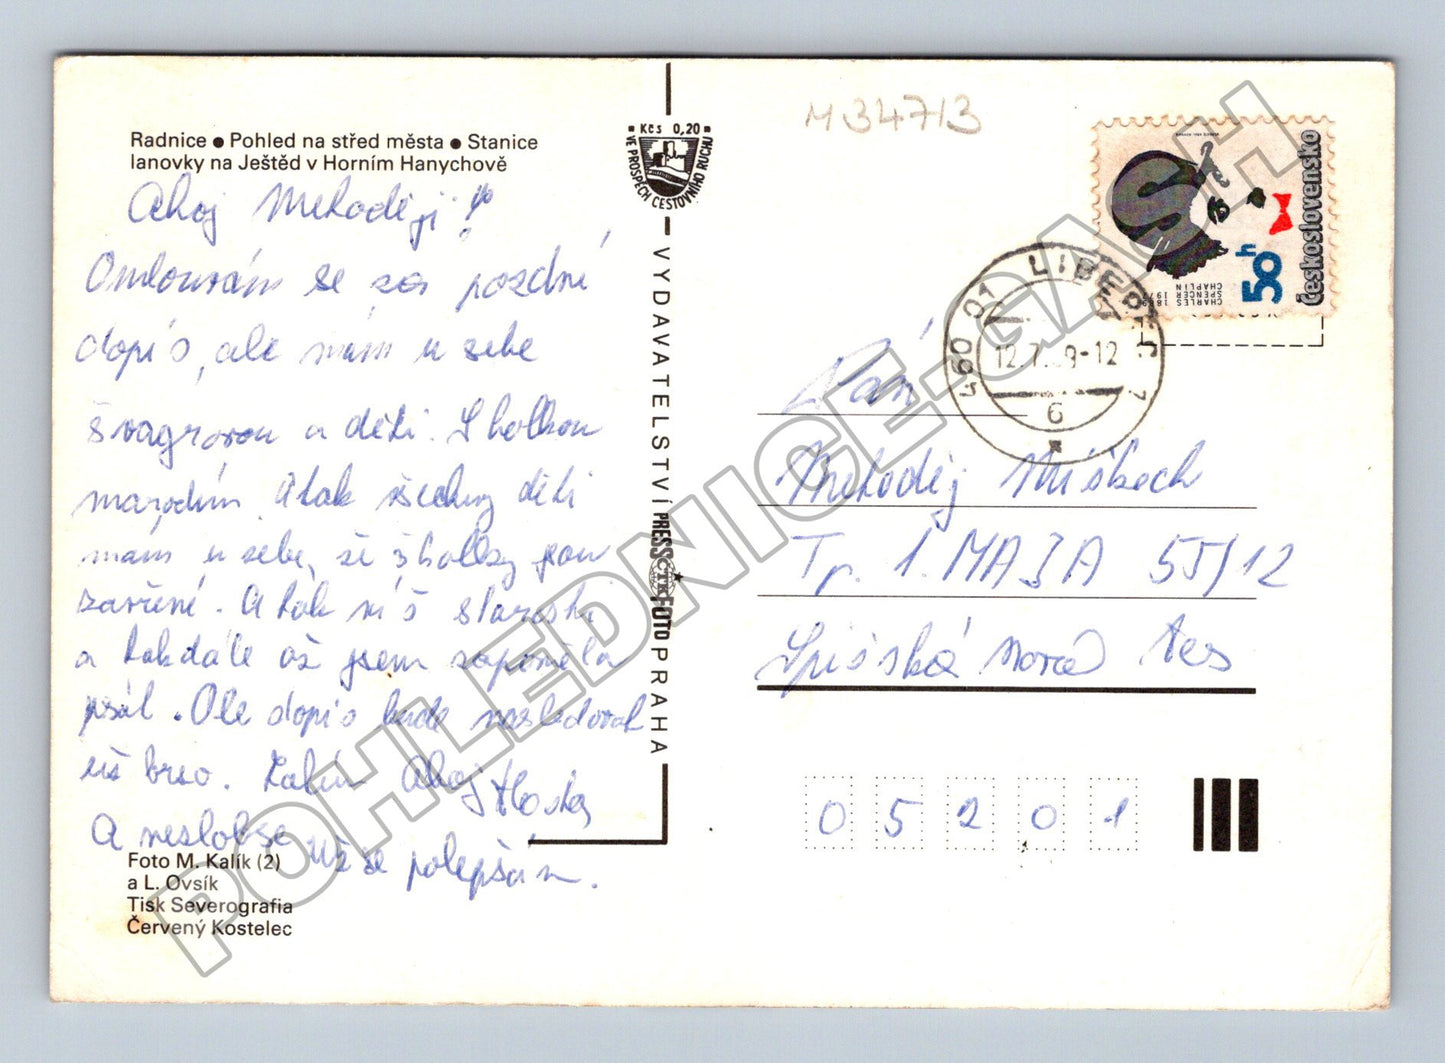 M34713
Radnice ● Pohled na střed města ● Stanice
lanovky na Ještěd v Horním Hanychově
Ahoj Metoději!
Omlouvám se za pozdní
dopis, ale mám u sebe
švagrovou a děti. S holkou
marodím. A tak všechny děti
mám u sebe, že 3 holky jsou
zavřené. A tak víš starosti
a tak dále až jsem zapoměla
psát. Ale dopis bude následovat
už brzo. Zatím Ahoj
A nezlob se už se polepším.
Foto M. Kalík (2)
a L. Ovsík
Tisk Severografia
Červený Kostelec
Kčs 0,20
VE PROSPĚCH CESTOVNÍHO RUCHU
VYDAVATELSTVÍ PRESSFOTO PRAHA
ČTK
Československo
50h
CHARLES
SPENCER
CHAPLIN
460 01 LIBEREC 1
12.7. 9-12
6
Pán
Metoděj
Tř. 1. MÁJA 55/12
Spišská Nová Ves
05201
POHLEDNICE-GASH